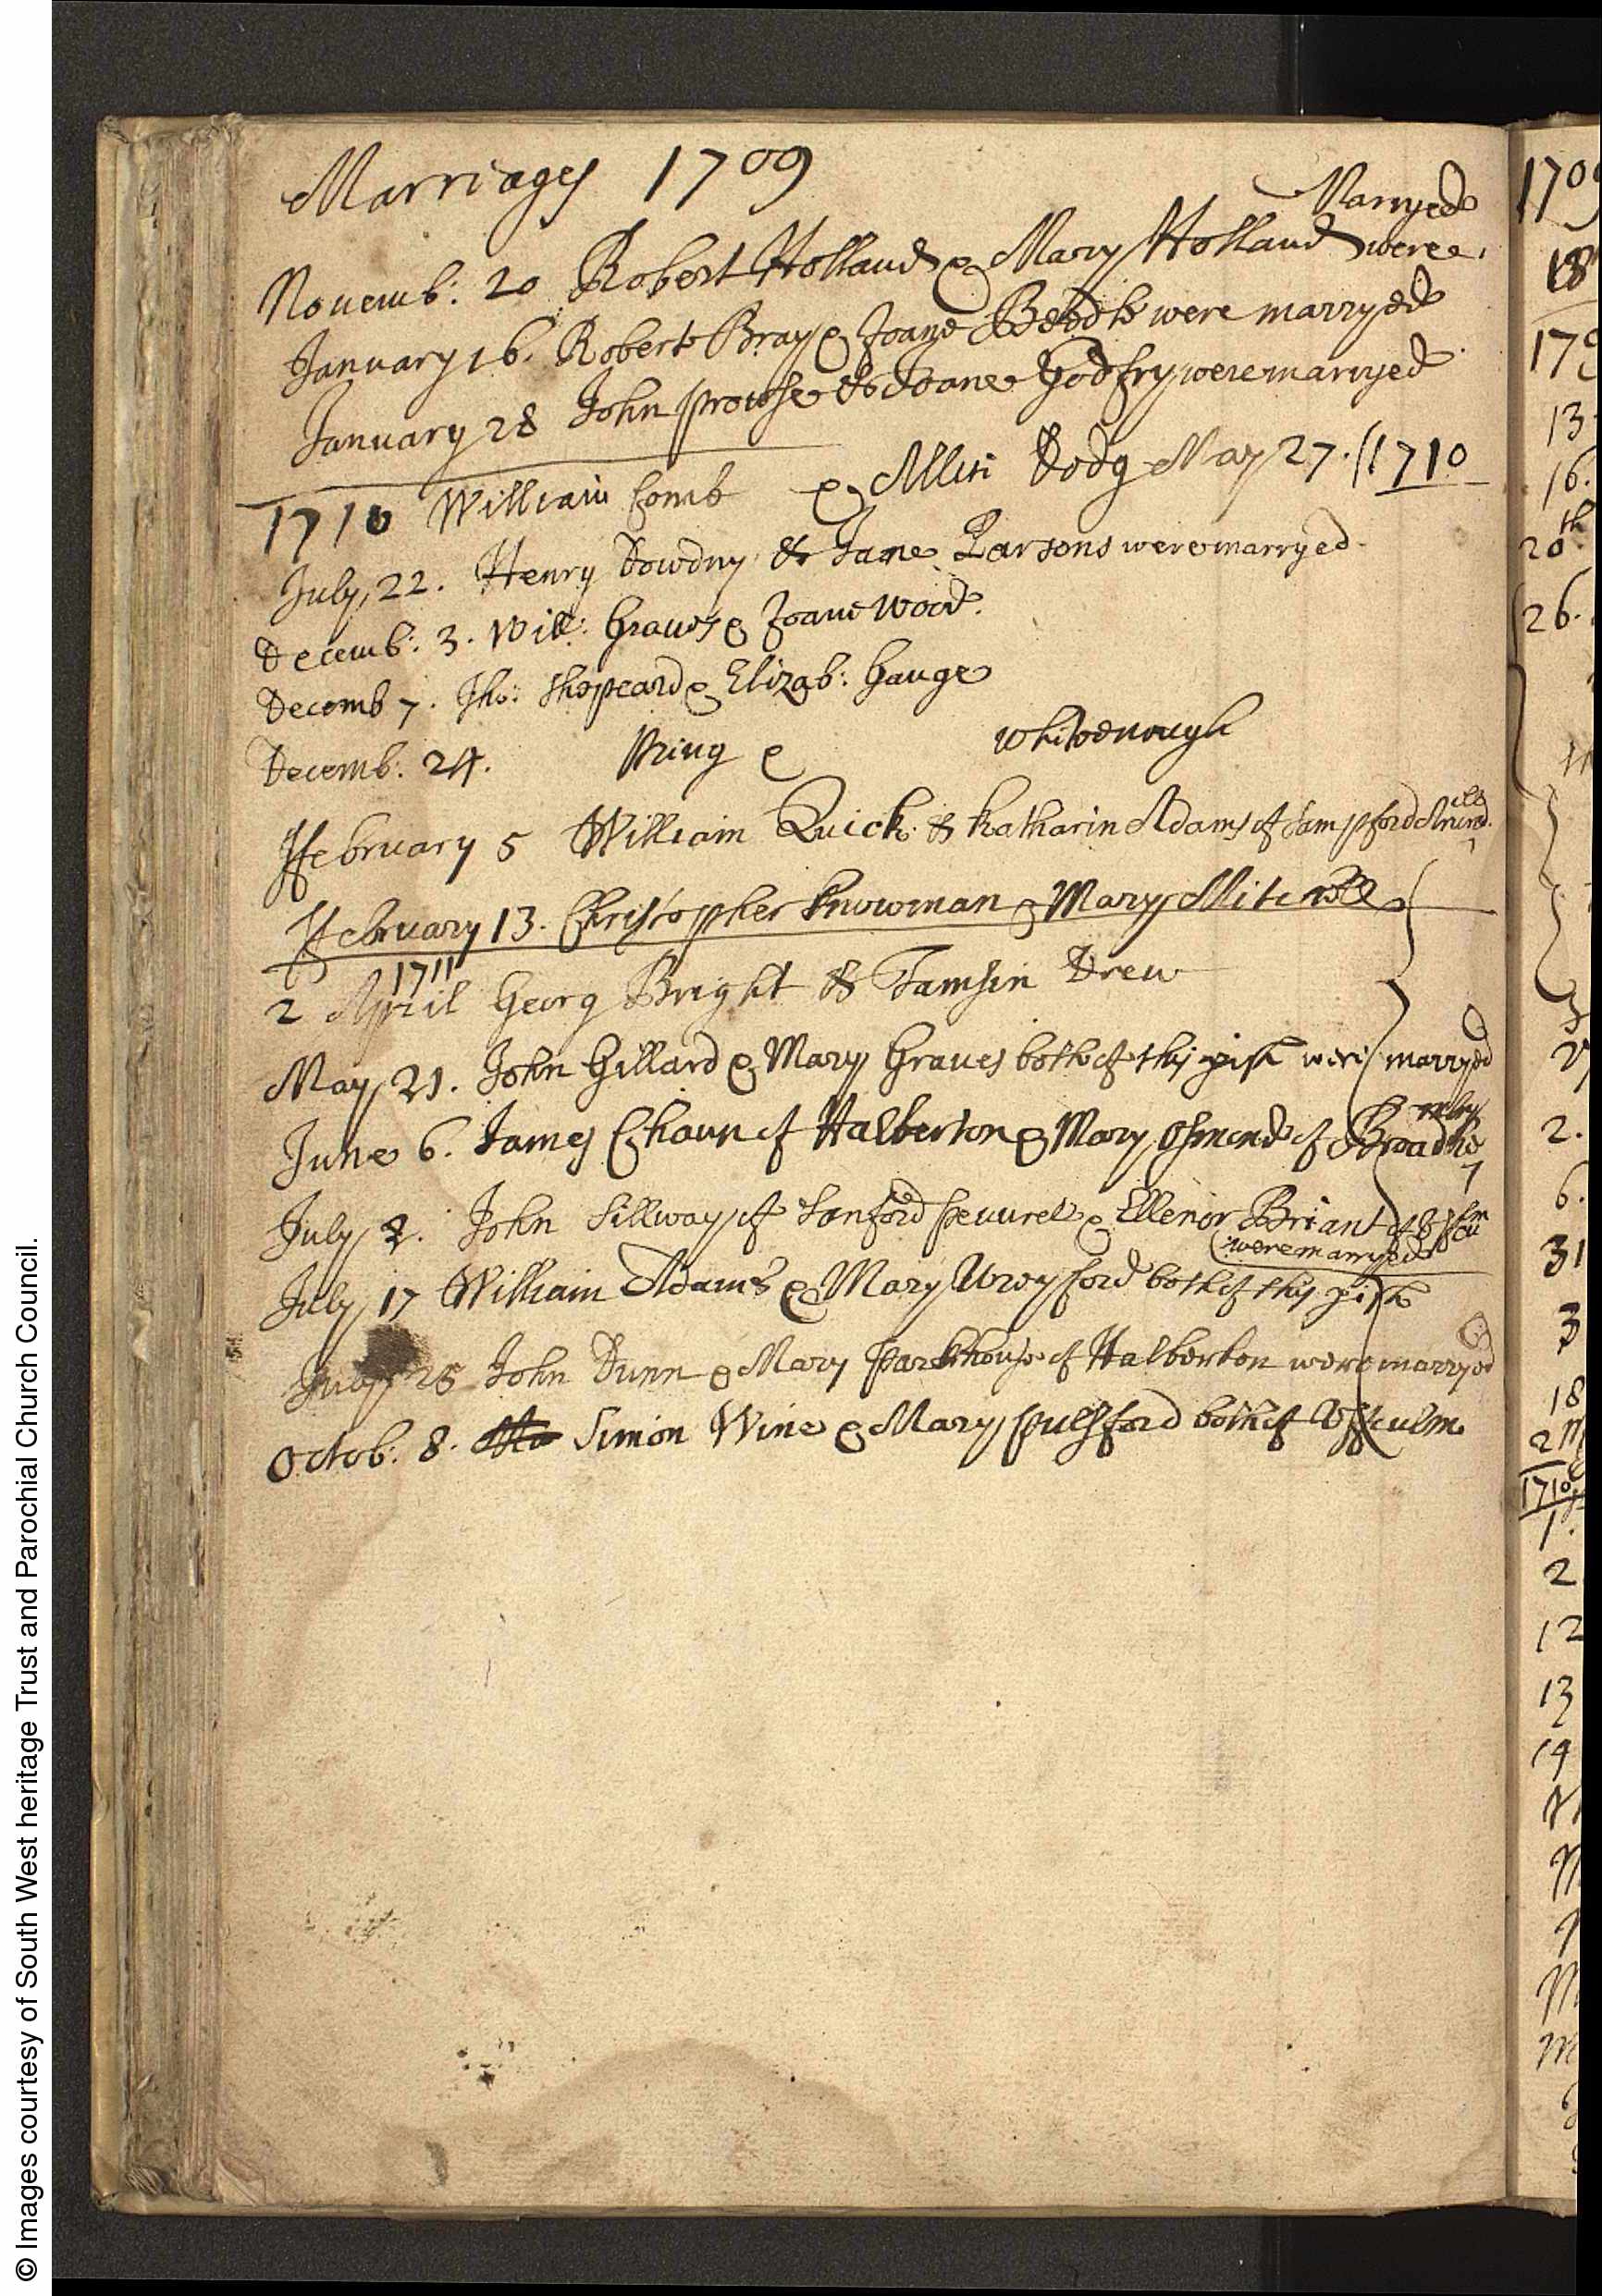 Marriages 1709
Marryed
Novemb: 20 Robert Holland & Mary Holland were
January 16. Robert Bray & Joane were marryed
January 28 John prowse & Joane Godfry were marryed
1710 William Comb & Dodg May 27. 1710
July 22. Henry Dowdny & Jane Parsons were marryed
Decemb: 3. Will: Graves & Joane Wood.
Decemb 7. Tho: Shepeard & Elizab: Gauge
Decemb: 24. Pring & Whitenough
ffebruary 5 William Quick & Katharin Adams of Sampford Arund.ell
ffebruary 13. Christopher Snowman & Mary Mitchell
1711
2 April Georg Bright & Tamsin Drew
May 21. John Gillard & Mary Graves both of this pish were marryed
June 6. James Chaun of Halberton & Mary Osmond of Broadhembry
July 2. John Sillway of Sanford pevurel & Ellenor Briant of
were marryed
July 17 William Adams & Mary both of this pish
July 25 John Dunn & Mary Parkhouse of Halberton were marryed
Octob: 8. Simon Wine & Mary pulsford both of Uffculm
1709
18
13
16.
20th
26.
2.
6.
31
3
18
1710
1.
2
12
13
14
© Images courtesy of South West heritage Trust and Parochial Church Council.